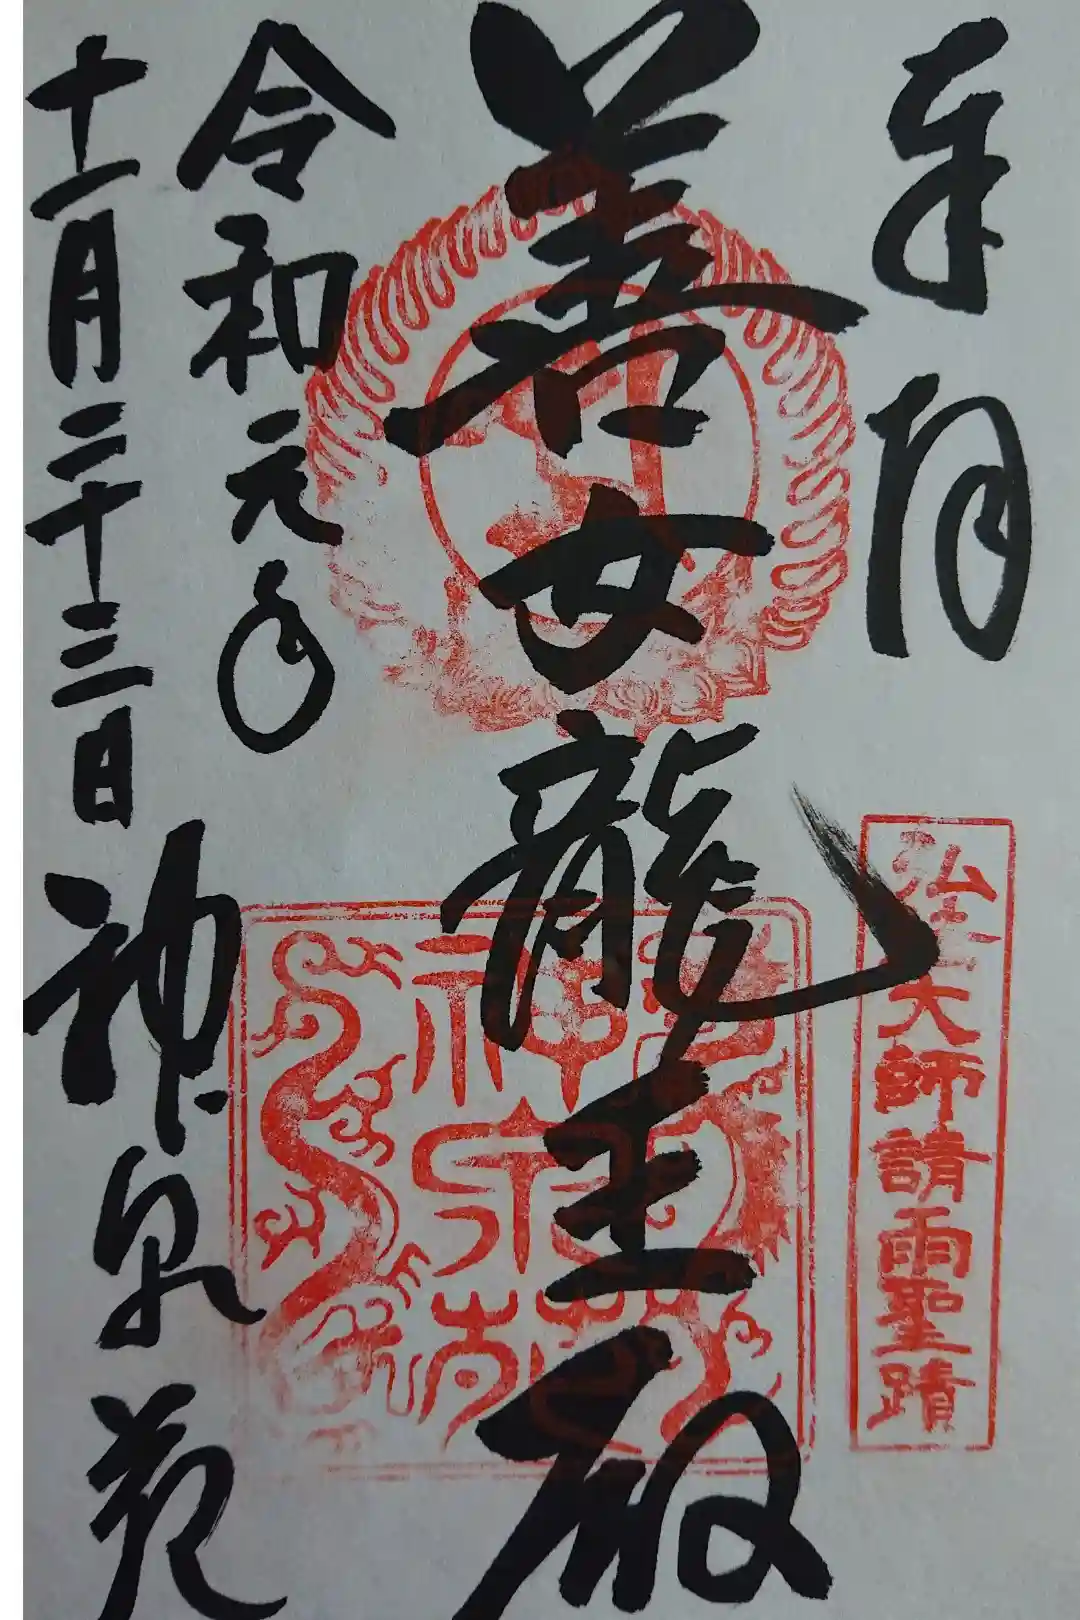 奉拝
弘法大師請雨聖蹟
善女龍王殿
令和元年
十一月二十三日
神泉苑